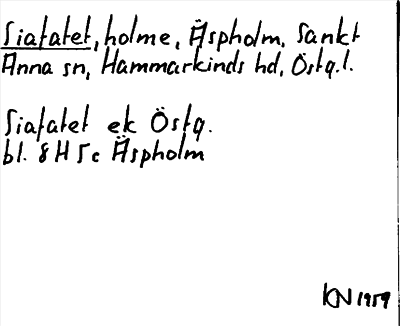 Siafatet, holme, Äspholm, Sankt
Anna sn, Hammarkinds hd, Östg.l.
Siafatet ek Östg.
bl. 8H 5c Äspholm
KN 1959